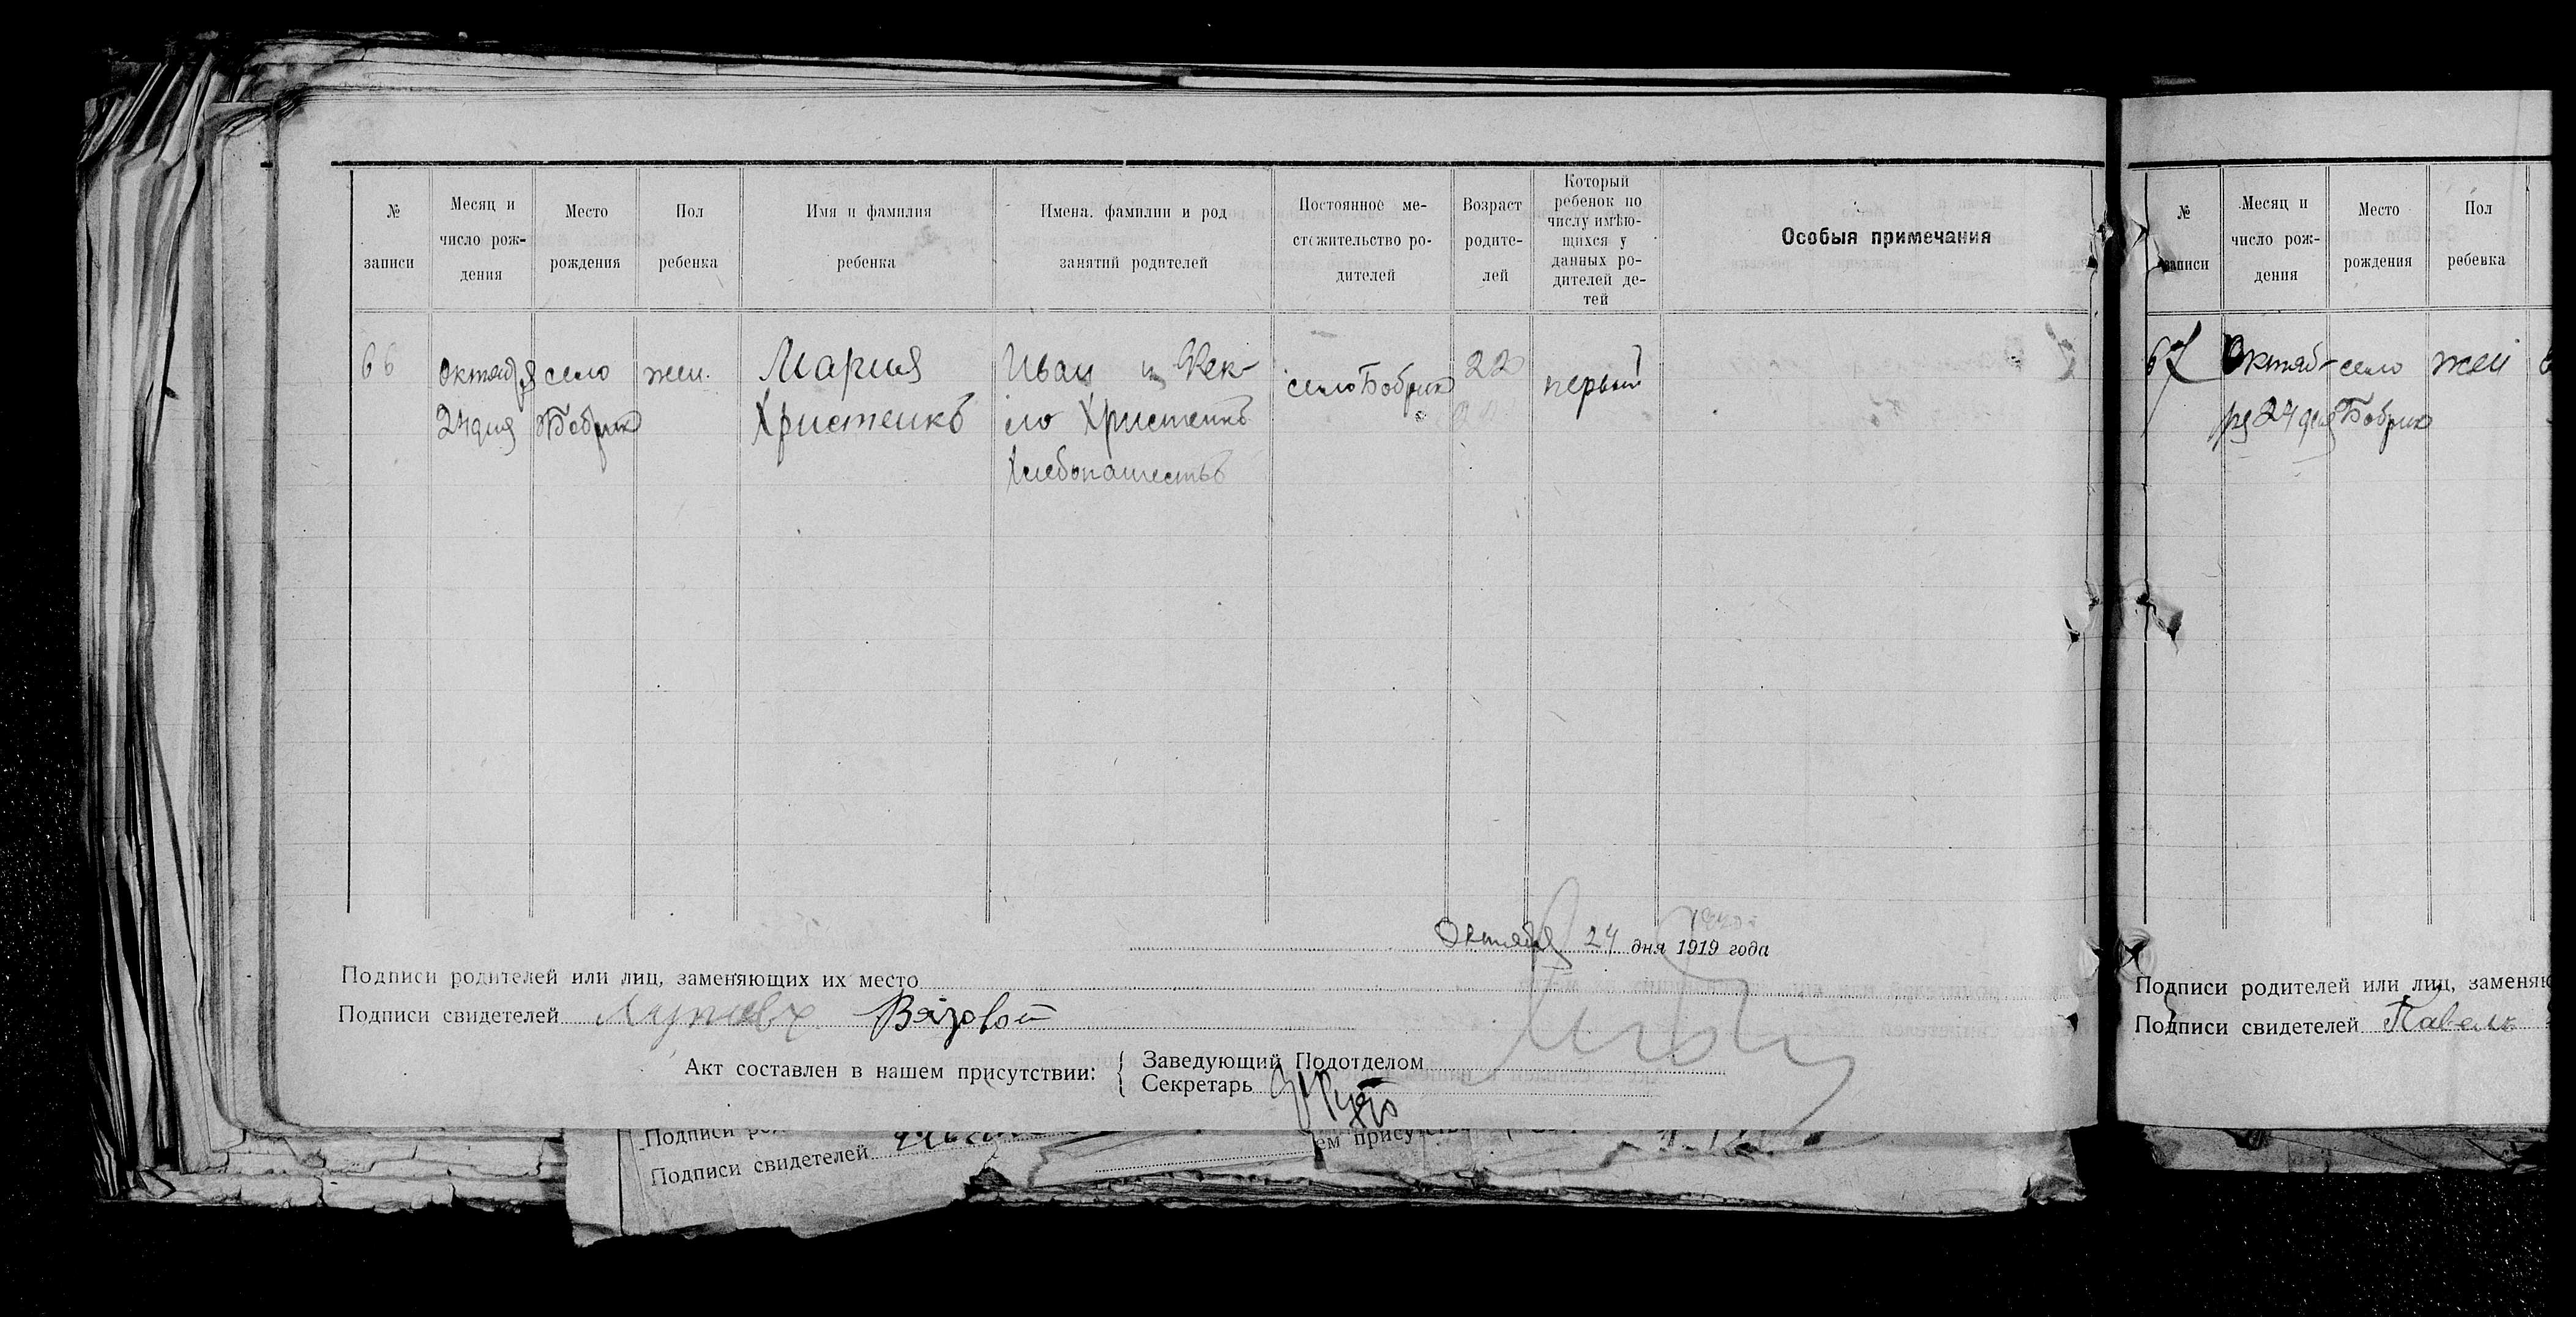 № записи
Месяц и число рождения
Место рождения
Пол ребенка
Имя и фамилия ребенка
Имена, фамилии и род занятий родителей
Постоянное местожительство родителей
Возраст родителей
Который ребенок по числу имѣющихся у данных родителей детей
Особыя примечания
66
Октября
24 дня
село
Бобрик
жен.
Мария
Христенко
Иван и Фек-
ло Христенко
Хлебопашество
село Бобрик
22
первый
Октября 24 дня 1919 года
Подписи родителей или лиц, заменяющих их место
Подписи свидетелей Вязовой
Акт составлен в нашем присутствии:
Заведующий Подотделом
Секретарь
Подписи
Подписи свидетелей
ем присут
№ записи
Месяц и число рождения
Место рождения
Пол ребенка
67
Октяб-
ря 24 дня
село
Бобрик
жен
Подписи родителей или лиц, заменяю
Подписи свидетелей Павел